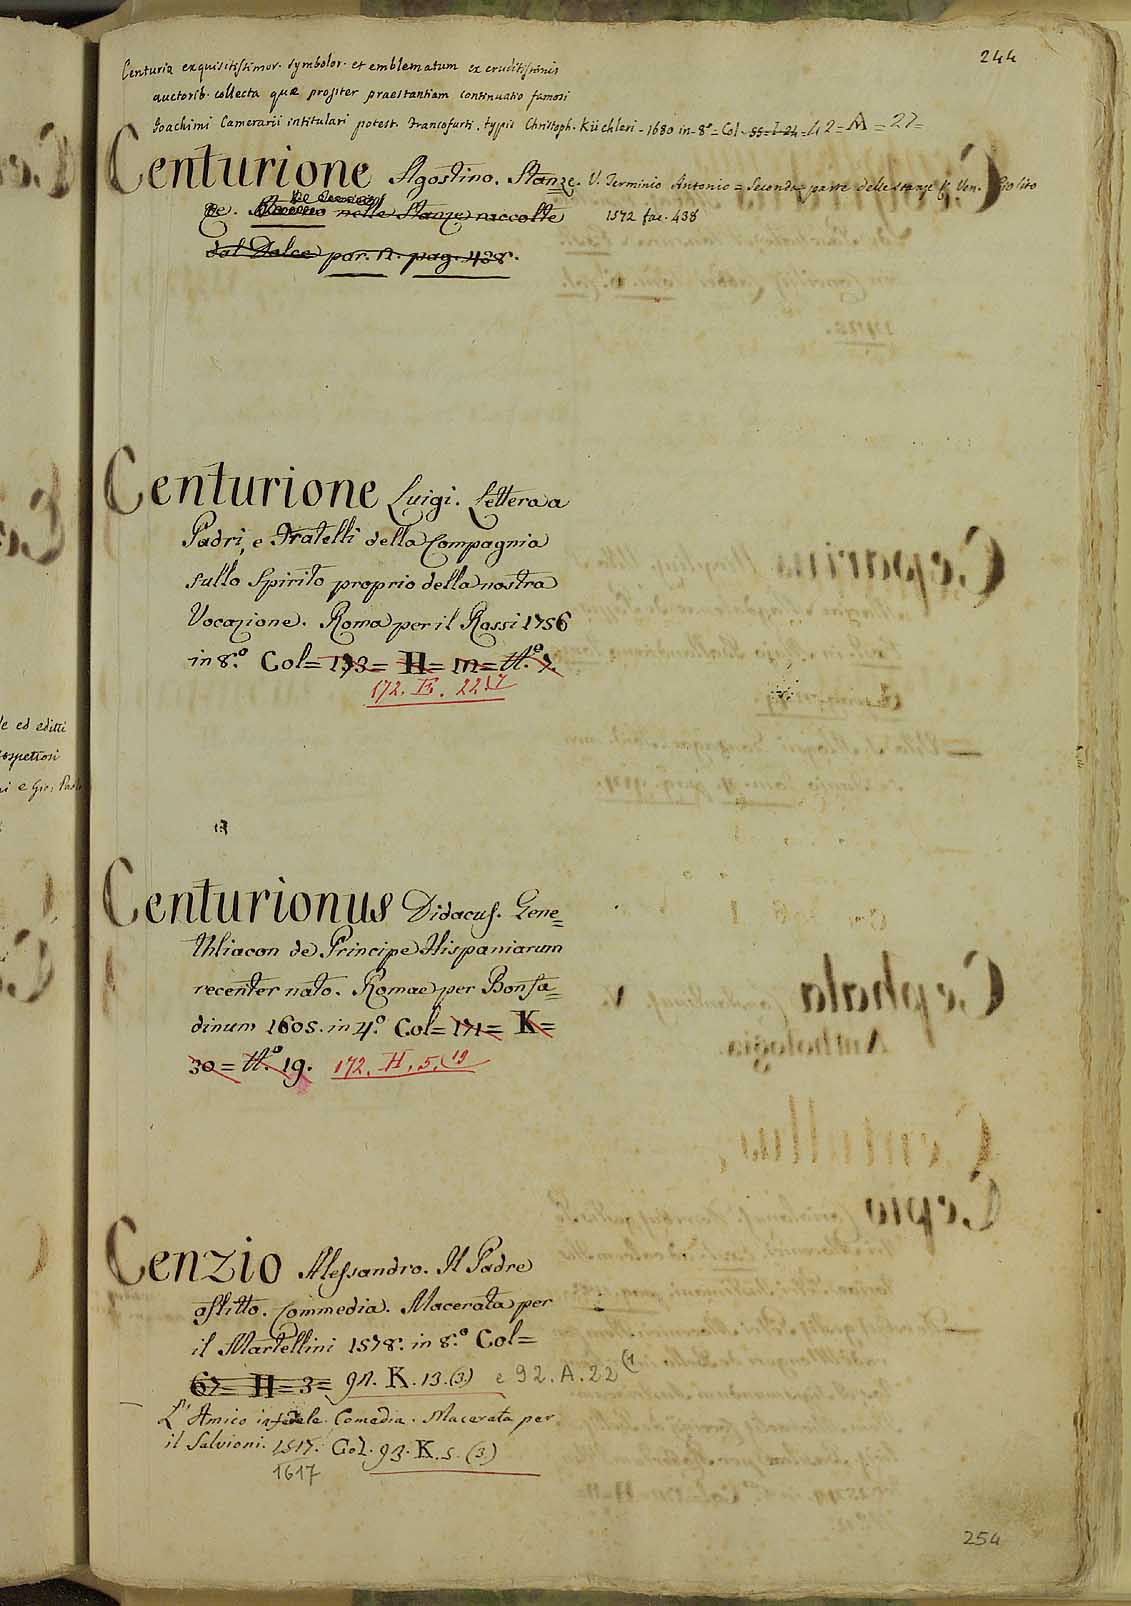 244
Centuria exquisitissimor. symbolor. et emblematum ex eruditissimis
auctorib. collecta quæ propter praestantiam continuatio famosi
Joachimi Camerarii intitulari potest. Francofurti. typis Christoph. Küchleri - 1680 in-8º = Col - 55 = I 24 = 42 = A = 27 =
Centurione Agostino. Stanze. V. Terminio Antonio = Seconda parte delle stanze &. Ven. Giolito
ze. nelle Stanze raccolte 1572 fac. 438
dal Dolce par. 2. pag. 438.
Centurione Luigi. Lettera a
Padri, e Fratelli della Compagnia
sullo Spirito proprio della nostra
Vocazione. Roma per il Rossi 1756
in 8º. Col = 133 = H = m = tt.º 7.
172. E. 22.(7
Centurionus Didacus. Gene=
thliacon de Principe Hispaniarum
recenter nato. Romae per Bonfa=
dinum 1605. in 4º. Col = 171 = K =
30 = tt.º 19. 172. H. 5. (19
Cenzio Alessandro. Il Padre
afflitto. Commedia. Macerata per
il Martellini 1578. in 8º. Col =
67 = H = 3 = 92. K. 13. (3.) e 92. A. 22 (1
L'Amico infedele. Comedia. Macerata per
il Salvioni. 1517. Col. 93. K. 5. (3.)
1617
254
le ed editti
i e Gio: Paolo